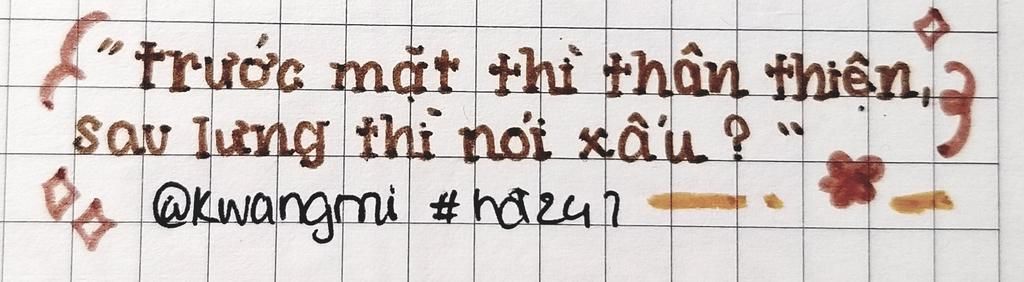 "trước mặt thì thân thiện,
sau lưng thì nói xấu ? "
@kwangmi #hđ247